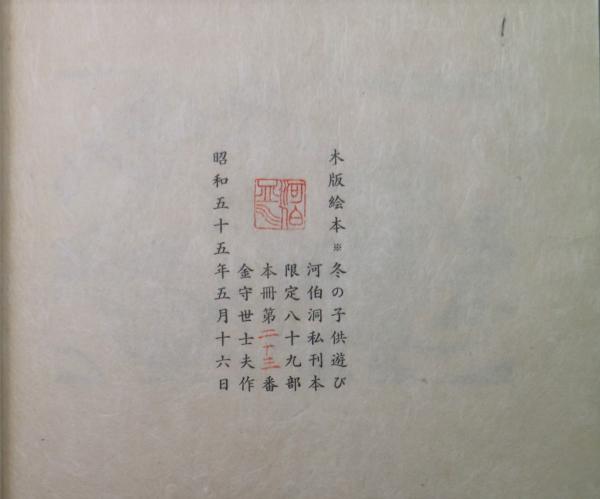 木版絵本※冬の子供遊び
河伯洞私刊本
限定八十九部
本冊第二十三番
金守世士夫作
昭和五十五年五月十六日